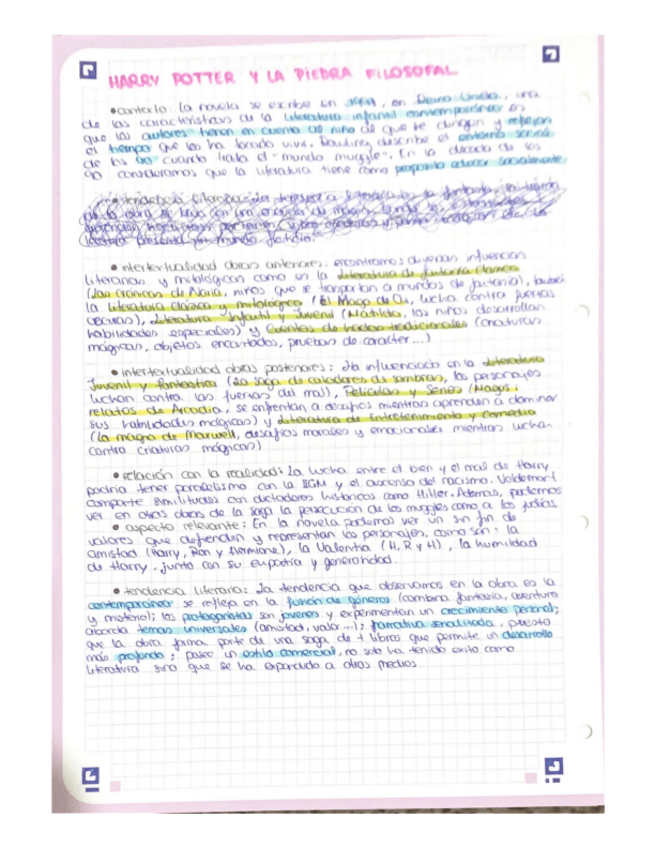 HARRY POTTER Y LA PIEDRA FILOSOFAL.
•contexto: La novela se escribe en , en Reino Unido, una
de las características de la literatura infantil contemporánea es
que los autores tienen en cuenta al niño al que se dirigen y reflejan
el tiempo que les ha tocado vivir. Rowling describe el entorno social
de los 90 cuando trata el "mundo muggle". En la década de los
90 consideramos que la literatura tiene como propósito educar socialmente
•intertextualidad obras anteriores: encontramos diversas influencias
literarias y mitológicas como es la literatura de fantasía clásica
(Las crónicas de Narnia, niños que se transportan a mundos de fantasía),
la literatura clásica y mitológica (El Mago de Oz, lucha contra fuerzas
oscuras), literatura infantil y juvenil (Matilda, los niños desarrollan
habilidades especiales) y cuentos de hadas tradicionales (criaturas
mágicas, objetos encantados, pruebas de carácter...)
•intertextualidad obras posteriores: Ha influenciado en la literatura
Juvenil y fantástica (La saga de cazadores de sombras, los personajes
luchan contra las fuerzas del mal), Películas y Series (Magos:
relatos de Arcadia, se enfrentan a desafíos mientras aprenden a dominar
sus habilidades mágicas) y literatura de Entretenimiento y Comedia
(La magia de Maxwell, desafíos morales y emocionales mientras lucha
contra criaturas mágicas)
•relación con la realidad: La lucha entre el bien y el mal de Harry
podría tener paralelismo con la IIGM y el ascenso del racismo. Voldemort
comparte similitudes con dictadores históricos como Hitler. Además, podemos
ver en otras obras de la saga la persecución de los muggles como a los judíos.
•aspecto relevante: En la novela podemos ver un sin fin de
valores que defienden y representan los personajes, como son: la
amistad (Harry, Ron y Hermione), la Valentía (H, R y H), la humildad
de Harry, junto con su empatía y generosidad.
•tendencia literaria: La tendencia que observamos en la obra es la
contemporánea se refleja en la fusión de géneros (combina fantasía, aventura
y misterio); los protagonistas son jóvenes y experimentan un crecimiento personal;
aborda temas universales (amistad, valor...); narrativa serializada, puesto
que la obra forma parte de una saga de 7 libros que permite un desarrollo
más profundo; posee un estilo comercial, no solo ha tenido éxito como
literatura sino que se ha expandido a otros medios